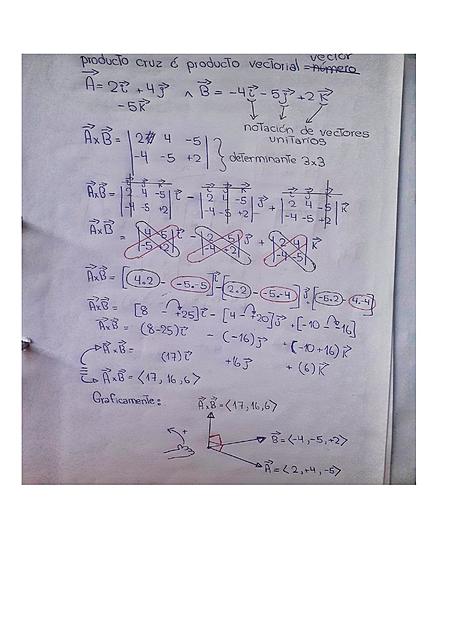 vector
producto cruz ó producto vectorial = número
A = 2i + 4j - 5k ∧ B = -4i - 5j + 2k
notación de vectores
unitarios
AxB = | 2 4 -5 |
| -4 -5 +2 | } determinante 3x3
AxB = | i j k | 2 4 -5 | -4 -5 +2 | i - | i j k | 2 4 -5 | -4 -5 +2 | j + | i j k | 2 4 -5 | -4 -5 +2 | k
AxB = | 4 -5 | -5 +2 | i - | 2 -5 | -4 +2 | j + | 2 4 | -4 -5 | k
AxB = [4.2 - -5.-5] i - [2.2 - -5.-4] j + [-5.2 - 4.-4]
AxB = [8 - +25] i - [4 - +20] j + [-10 - -16]
AxB = (8-25) i - (-16) j + (-10+16) k
AxB = (17) i +16 j + (6) k
AxB = <17, 16, 6>
Graficamente:
AxB = <17, 16, 6>
+
B = <-4, -5, +2>
A = <2, +4, -5>